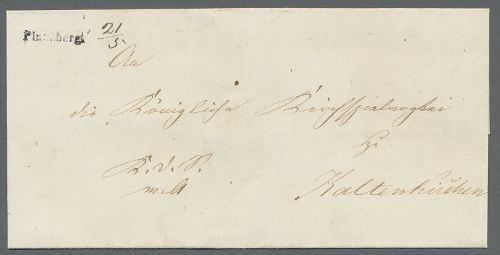 Pinneberg 21/5
An
die Königliche Kirchspielvogtei
zu
K. d. S.
Kaltenkirchen